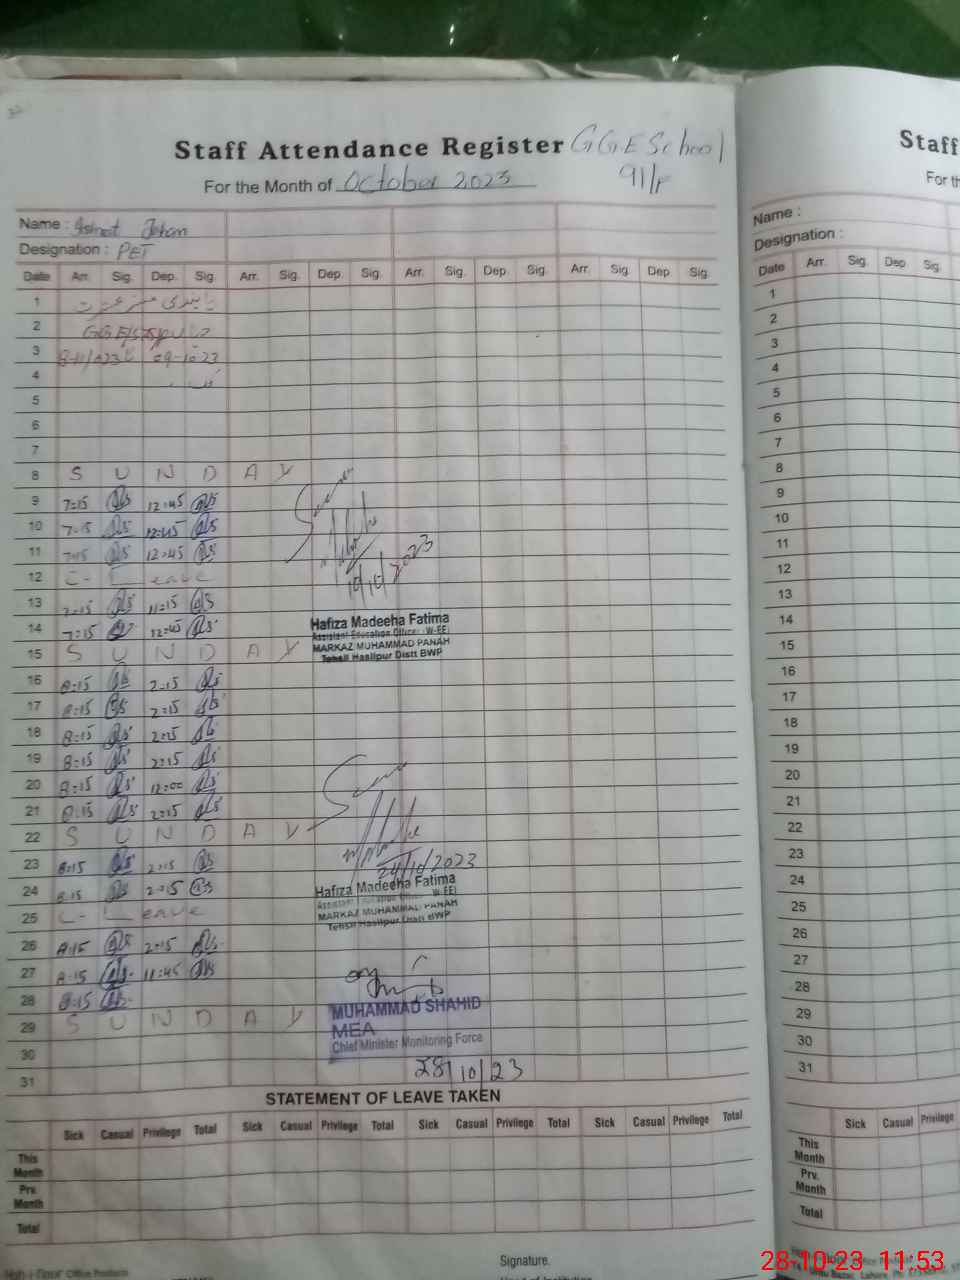 Staff Attendance Register GGE School
For the Month of October 2023 91/F
Name : Ismat Jahan
Designation : PET
Date Arr. Sig. Dep. Sig. Arr. Sig. Dep. Sig. Arr. Sig. Dep. Sig. Arr. Sig. Dep. Sig.
1
2
3 09-10-23
4
5
6
7
8 S U N D A Y
9 7:15 12:45
10 7:15 12:45
11 7:15 12:45
12 C- Leave
13 7:15 11:15
14 7:15 12:45
10/10/2023
Hafiza Madeeha Fatima
Assistant Education Officer (W-EE)
MARKAZ MUHAMMAD PANAH
Tehsil Hasilpur Distt BWP
15 S U N D A Y
16 8:15 2:15
17 8:15 2:15
18 8:15 2:15
19 8:15 2:15
20 8:15 12:00
21 8:15 2:15
22 S U N D A Y
23 8:15 2:15
24 8:15 2:15
24/10/2023
Hafiza Madeeha Fatima
Assistant Education Officer (W-EE)
MARKAZ MUHAMMAD PANAH
Tehsil Hasilpur Distt BWP
25 C- Leave
26 8:15 2:15
27 8:15 11:45
28 8:15
29 S U N D A Y
30
31
MUHAMMAD SHAHID
MEA
Chief Minister Monitoring Force
28/10/23
STATEMENT OF LEAVE TAKEN
Sick Casual Privilege Total Sick Casual Privilege Total Sick Casual Privilege Total Sick Casual Privilege Total
This Month
Prv. Month
Total
Signature.
Staff
For th
Name :
Designation :
Date Arr. Sig. Dep. Sig.
1
2
3
4
5
6
7
8
9
10
11
12
13
14
15
16
17
18
19
20
21
22
23
24
25
26
27
28
29
30
31
Sick Casual Privilege
This Month
Prv. Month
Total
28-10-23 11:53